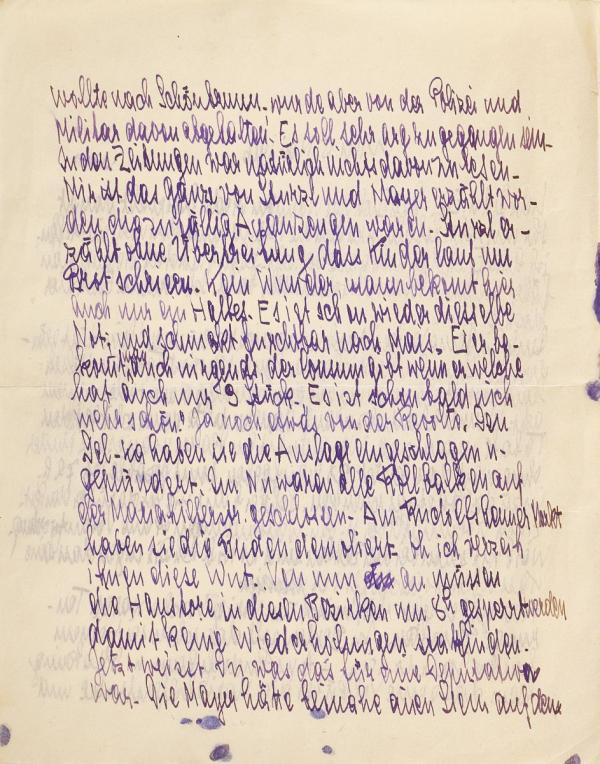 wollte nach Schönbrunn. wurde aber von der Polizei und
Militär davon abgehalten. Es soll sehr arg zugegangen sein-
In den Zeitungen war natürlich nichts davon zu lesen-
Mir ist das Ganze von Sturzl und Mayer erzählt wor-
den die zufällig Augenzeugen waren. Sturzl er-
zählt ohne Übertreibung dass Kinder laut um
Brot schrieen. Kein Wunder mann bekomt hier
auch nur ein Halbes. Es ist schon wieder diesselbe
Not, und schmekt furchtbar nach Mais. Eier be-
komt man auch nirgends der wenn er welche
hat auch nur 9 Stück. Es ist schon bald nich
mehr schön! Ja noch von der Revolte. Den
haben sie die Auslage eingeschlagen u.
geplündert. Im waren alle Rollbalken auf
der Mariahilferstr. geschlossen- Am Rudolfsheimer Markt
haben sie die Buden demoliert. Oh ich verzeih
ihnen diese Wut. Von nun an müssen
die Haustore in diesen Bezirken um 8h gesperrt werden
damit keine Wiederholungen stattfinden.
Jetzt weisst Du was das für eine
war. Die Mayer hätte beinahe einen Stein auf den